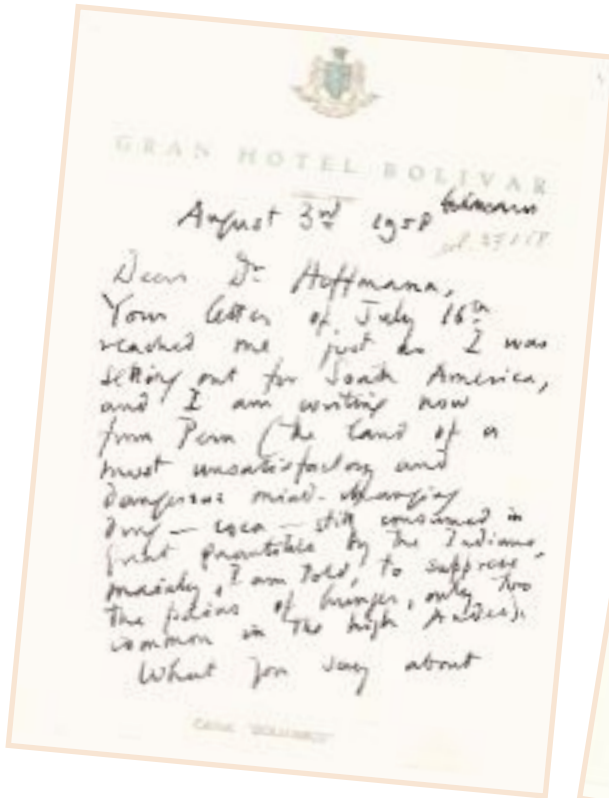 GRAN HOTEL BOLIVAR
August 3rd 1958
Dear Dr Hoffmann,
Your letter of July 16th
reached me just as I was
setting out for South America,
and I am writing now
from Peru (the land of a
most unsatisfactory and
dangerous mind-changing
drug — coca — still consumed in
great quantities by the Indians,
mainly, I am told, to suppress
the pains of hunger, only too
common in the high Andes).
What you say about